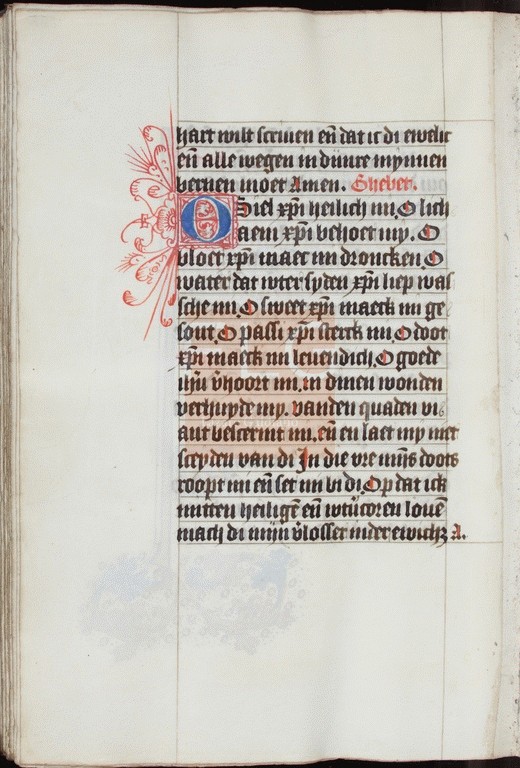 hart wilt scriuen en̄ dat ic di ewelic
en̄ alle wegen in dūnre mynnen
bernen moet Amen. Ghebet.
O Siel xp̄i heilich mi. O lich
aem xp̄i behoet my. O
bloet xp̄i maet mi droncken. O
water dat wter syden xp̄i liep was
sche mi. O sweet xp̄i maeck mi ge
sont. O passi xp̄i sterck mi. O doot
xp̄i maeck mi leuendich. O goede
ih̄u v̄hoort mi. in dinen wonden
verhuyde my. vanden quaden vi
ant bescermt mi. en̄ en laet my niet
sceyden van di In die vre mījs doots
roopt mi en̄ set mi bi di. Op dat ick
mitten heiligē en̄ wtūcoren louē
mach di mijn v̄losser inder ewich; A.